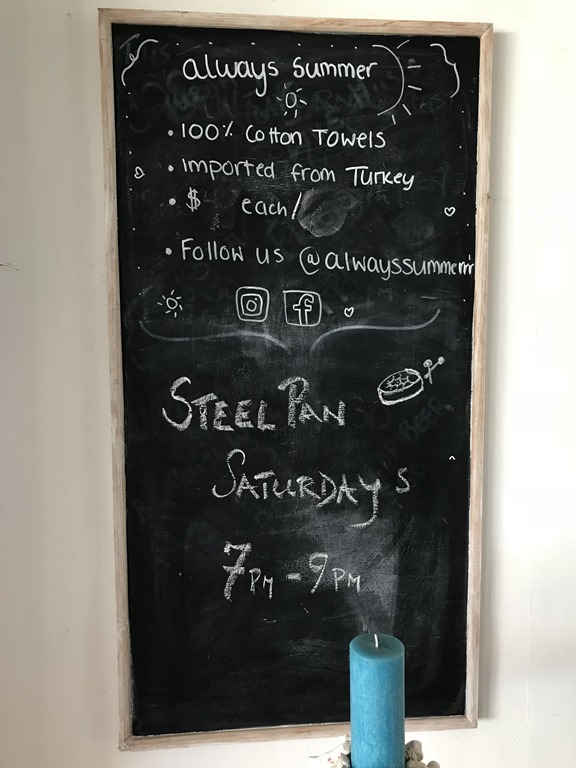 always summer
• 100% Cotton Towels
• imported from Turkey
• $ each/
• Follow us @alwayssummerrr
f
STEEL PAN
SATURDAYS
7PM - 9PM